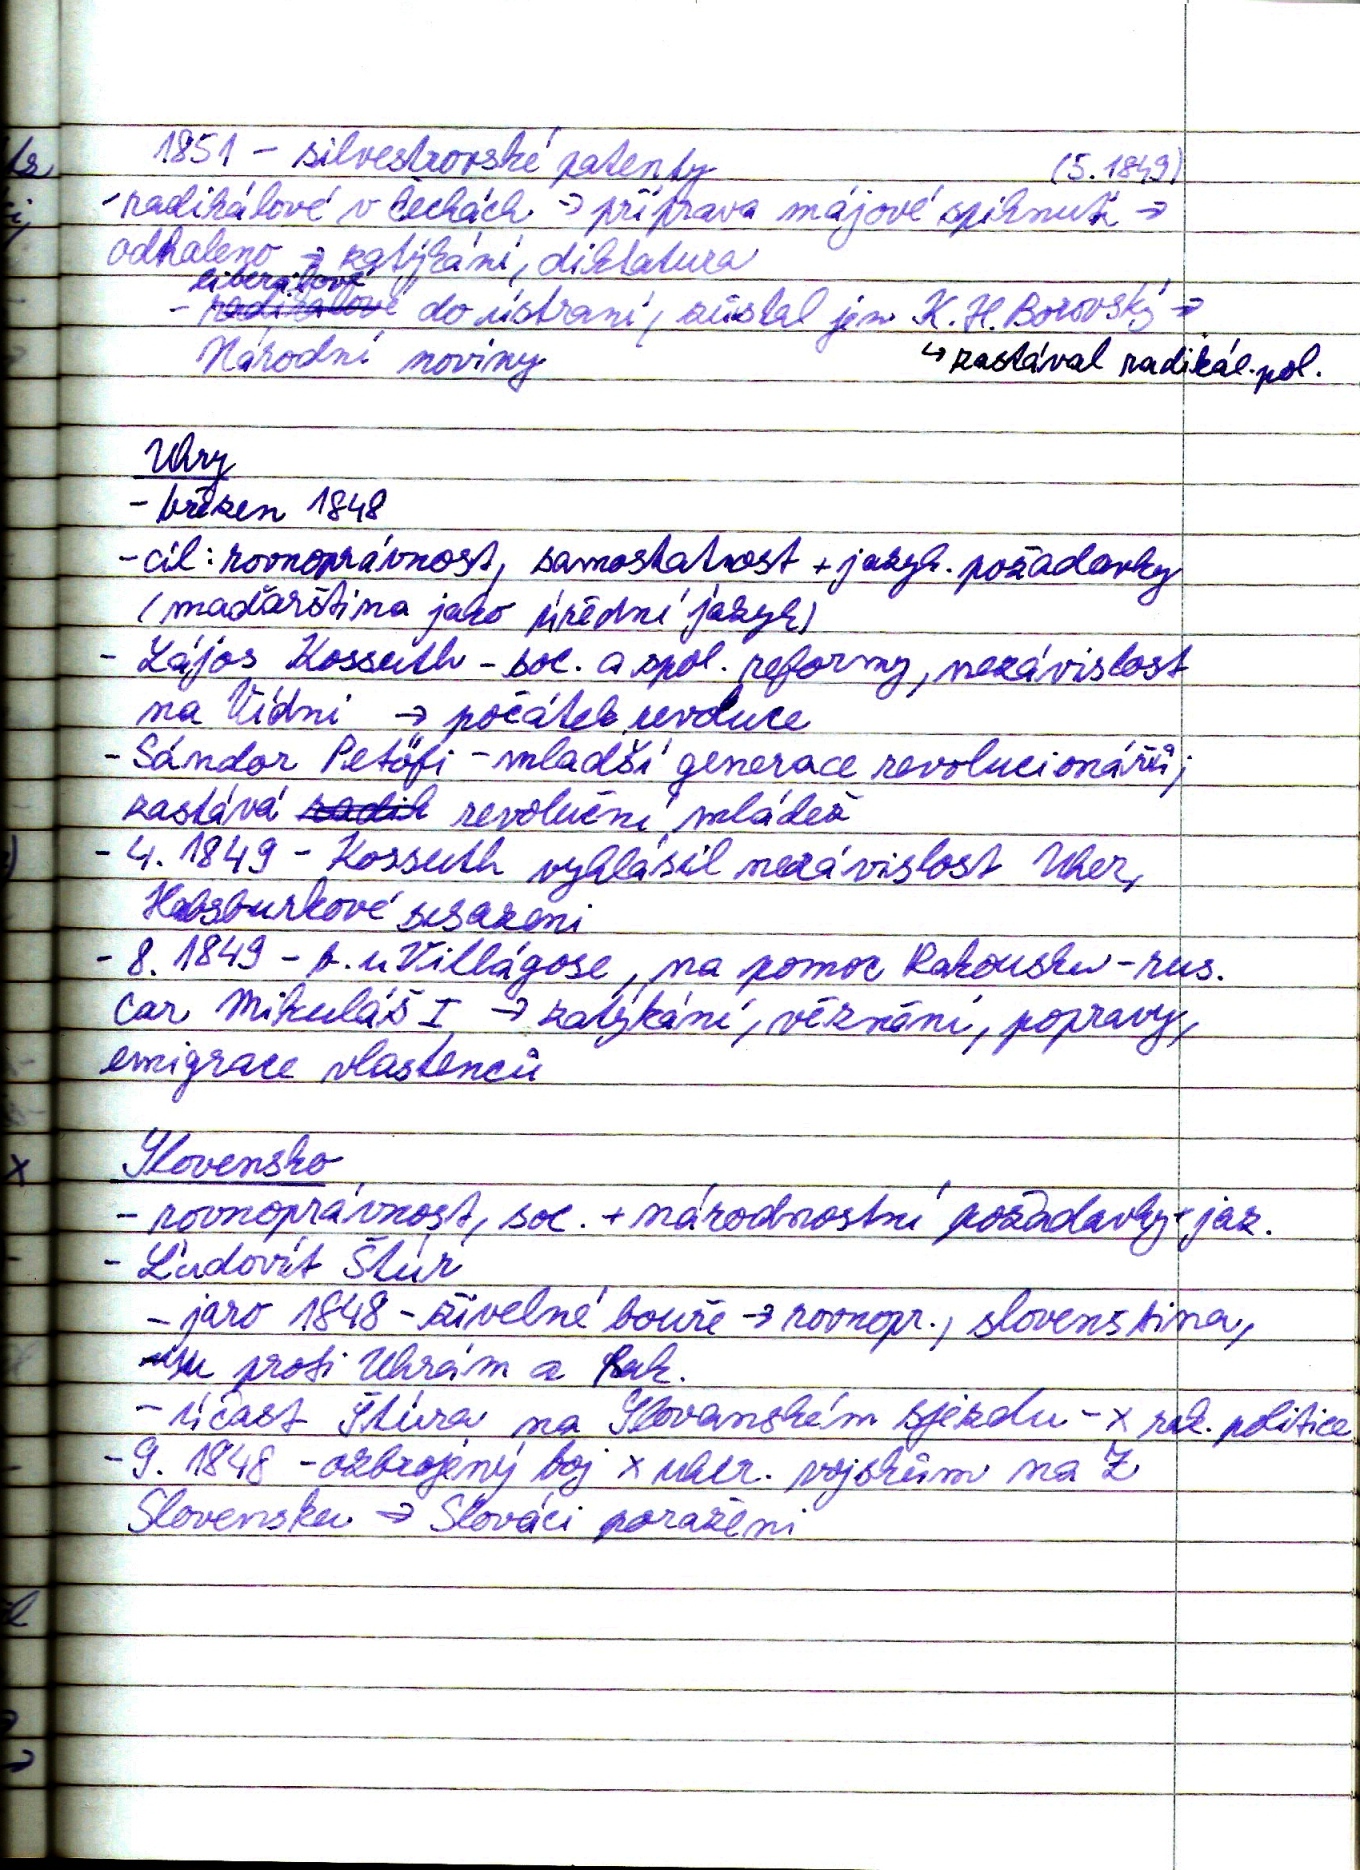 1851 – silvestrovské patenty
(5. 1849)
- radikálové v Čechách → příprava májové spiknutí →
odhaleno → zatýkání, diktatura
liberálové
- radikálové do ústraní, zůstal jen K. H. Borovský →
Národní noviny
↳ zastával radikál. pol.
Uhry
- březen 1848
- cíl: rovnoprávnost, samostatnost + jazyk. požadavky
(maďarština jako úřední jazyk)
- Lájos Kossuth – soc. a spol. reformy, nezávislost
na Vídni → počátek revoluce
- Sándor Petőfi – mladší generace revolucionářů,
zastává radik revoluční mládež
- 4. 1849 – Kossuth vyhlásil nezávislost Uher,
Habsburkové sesazeni
- 8. 1849 – b. u Villágose, na pomoc Rakousku – rus.
car Mikuláš I. → zatýkání, věznění, popravy,
emigrace vlastenců
Slovensko
- rovnoprávnost, soc. + národnostní požadavky + jaz.
- Ľudovít Štúr
- jaro 1848 – živelné bouře → rovnopr., slovenština,
proti Uhrám a Rak.
- účast Štúra na Slovanském sjezdu – x rak. politice
- 9. 1848 – ozbrojený boj x uher. vojskům na Z
Slovensku → Slováci poraženi